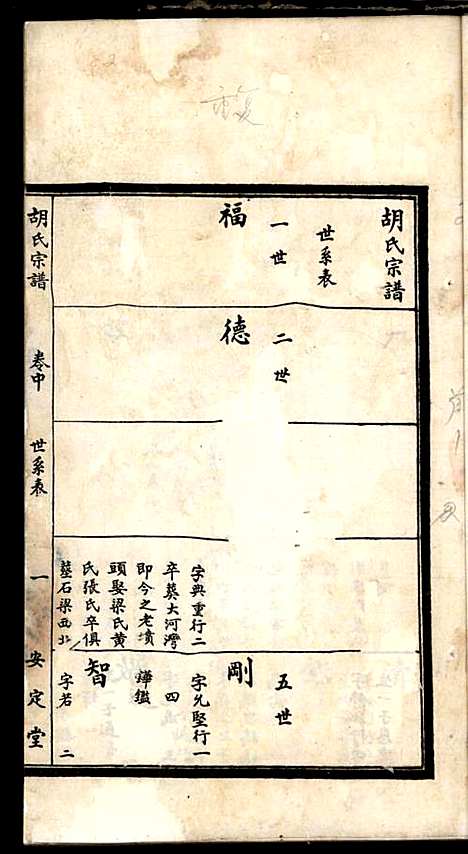 胡氏宗譜
世系表
一世
福
二世
德
字典重行二
卒葬大河灣
即今之老墳
頭娶梁氏黄
氏張氏卒俱
墓石梁西北
五世
剛
字允堅行一
四
鏵鑑
智
字若 二
胡氏宗譜 卷中 世系表 一 安定堂